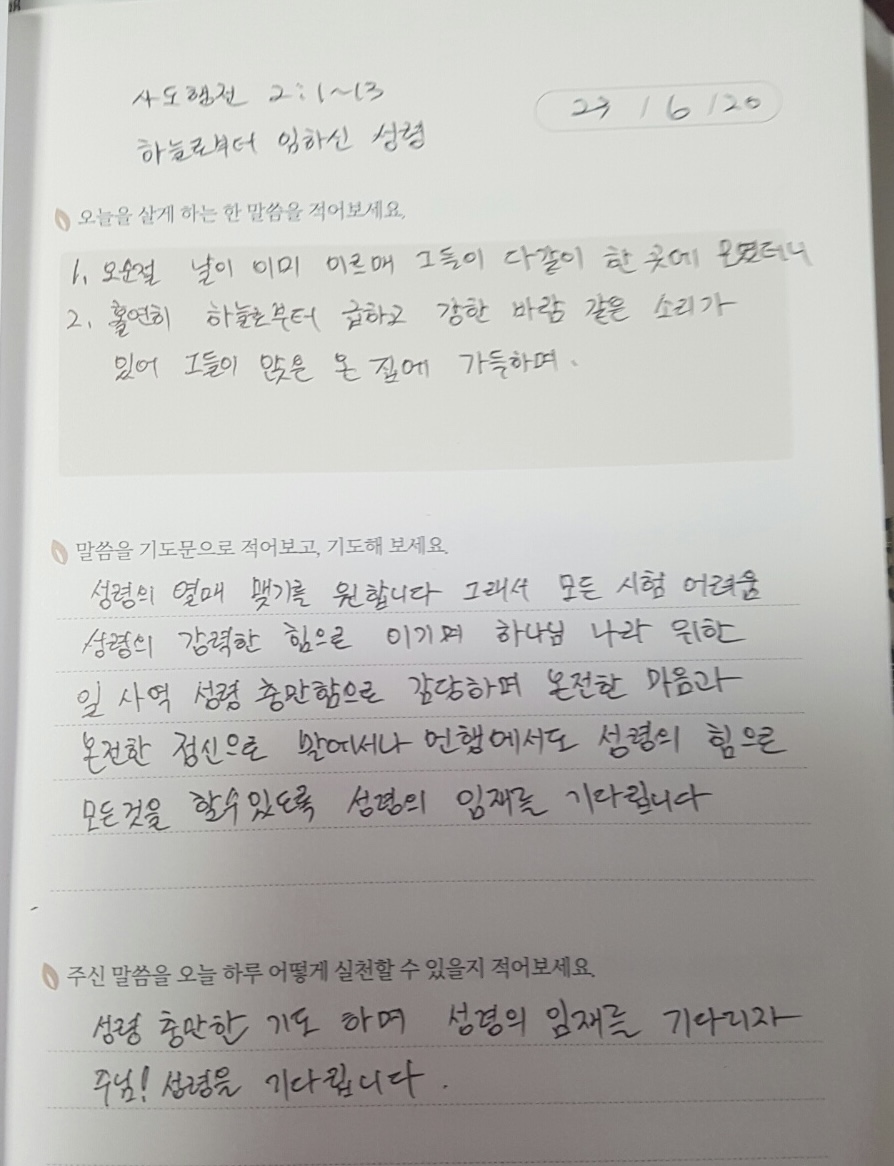 사도행전 2:1~13
23/6/20
하늘로부터 임하신 성령
오늘을 살게 하는 한 말씀을 적어보세요.
1. 오순절 날이 이미 이르매 그들이 다같이 한 곳에 모였더니
2. 홀연히 하늘로부터 급하고 강한 바람 같은 소리가
있어 그들이 앉은 온 집에 가득하며.
말씀을 기도문으로 적어보고, 기도해 보세요.
성령의 열매 맺기를 원합니다 그래서 모든 시험 어려움
성령의 강력한 힘으로 이기며 하나님 나라 위한
일 사역 성령 충만함으로 감당하며 온전한 마음과
온전한 정신으로 말에서나 언행에서도 성령의 힘으로
모든것을 할수있도록 성령의 임재를 기다립니다
주신 말씀을 오늘 하루 어떻게 실천할 수 있을지 적어보세요.
성령 충만한 기도 하며 성령의 임재를 기다리자
주님! 성령을 기다립니다.